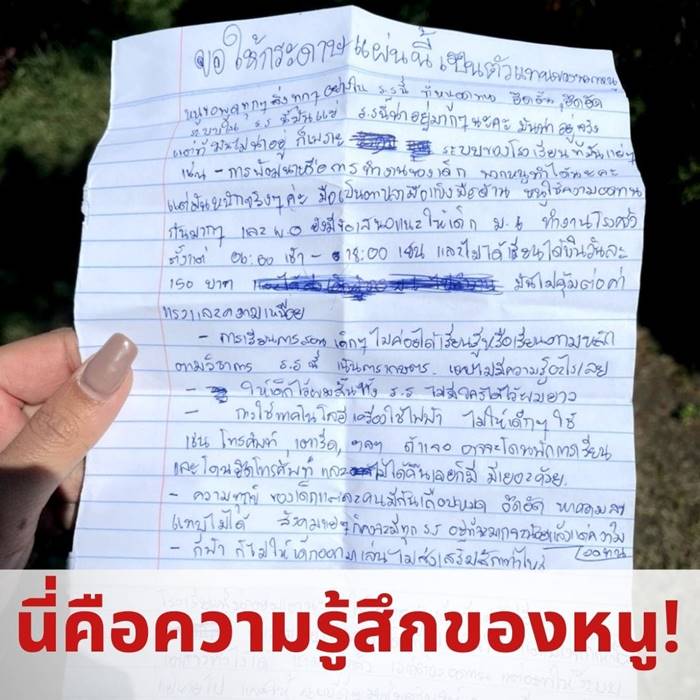 ขอให้กระดาษแผ่นนี้ เป็นตัวแทนของพวกหนู
หนูขอพูดทุกๆ สิ่งทุกๆ อย่างใน ร.ร นี้ ที่หนูอดทน อึดอัด
ระบบใน ร.ร นี้มันแย่ ร.ร นี้น่าอยู่มากๆ นะคะ มันน่าอยู่จริง
แต่ที่มันไม่น่าอยู่ ก็เพราะ ระบบของโรงเรียนที่มันแย่ๆ
เช่น - การพัฒนาหรือการทำงานของเด็ก พวกหนูทำได้นะคะ
แต่มันหนักจริงๆค่ะ มือเป็นตานลามือเก่งมือด้าน หนูใช้ความอดทน
กันมากๆ และ ผ.อ ยังมีข้อเสนอแนะให้เด็ก ม.6 ทำงานโรงครัว
ตั้งแต่ 06:00 เช้า - 18:00 เย็น และไม่ได้เรียนได้เงินวันละ
150 บาท มันไม่คุ้มต่อค่า
แรงและความเหนื่อย
- การเรียนการสอน เด็กๆ ไม่ค่อยได้เรียนรู้หรือเรียนตามหลัก
ตามวิชาการ ร.ร นี้ เน้นการเกษตร. แทบไม่มีความรู้อะไรเลย
- ให้เด็กไว้ผมสั้นทั้ง ร.ร ไม่มีใครได้ไว้ผมยาว
- การใช้เทคโนโลยี เครื่องใช้ไฟฟ้า ไม่ให้เด็กๆ ใช้
เช่น โทรศัพท์, เตารีด, ฯลฯ ถ้าเจอ อาจจะโดนพักการเรียน
และโดนยึดโทรศัพท์ และไม่ได้คืนเลยก็มี มีเยอะด้วย.
- ความทุกข์ ของเด็กแต่ละคนมีกันเกือบหมด อึดอัด หาความสุข
แทบไม่ได้ สังคมแย่ๆ ก็คงจะมีทุก ร.ร อยู่ที่หมากจะน้อยแล้วแต่ความ
อดทน
- กีฬา ก็ไม่ให้เด็กออกมาเล่น ไม่ส่งเสริมสักเท่าไหร่
นี่คือความรู้สึกของหนู!